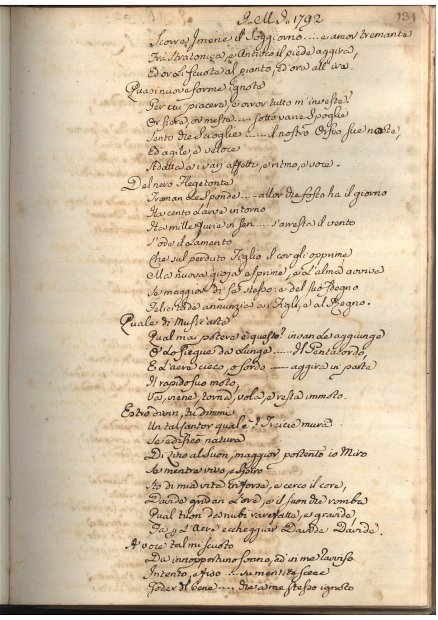 1792
131
Scorre Imene il Soggiorno .... e amor tremante
Fra Stratonica, e Antioco il piede aggira,
Ed or li scuota al pianto, ed ora all'ira.
Quasi nuove forme ignote
Per cui piacere, e orror tutto m'investe?
sotto varie Spoglie
Sento che Scioglie ..... il nostro Orfeo sue note
Ed agile, e veloce
Adatta a i varj affetti, e ritmo, e voce.
Del nero Flegetonte
allor che fosco ha il giorno
Ha cento Larve intorno
Ha mille Furie in sen .... s'arresta il vento
S'ode il Lamento
Che sul perduto Figlio il cor gli opprime
Ma nuova gioja esprime, e l'alma avviva
Se maggior di se stesso: e del suo Regno
Felicità annunzia a i Figli, e al Regno.
Quale di Music'arte
Qual mai potere è questo? invan Le aggiunge
E Lo siegue da Lunge ..... Il Pentacordo,
E L'aere cieco, o sordo ..... aggira in parte
Il rapido suo moto,
Va, viene, torna, vola, e resta immoto.
Estro divin, tu dimmi
Un tal Cantor qual è? Treicie mura
Se edificò natura
Di Lino al Suon, maggior portento io Miro
Se mentre vivo, e spiro
Sto di mia vita in forse, e cerco il core,
Davide gridan L'ore, e il suon che romba
Qual tuon da nubi rarefatte, e grande,
Fa p. L'Aere eccheggiar Davide Davide.
A voce tal mi scuoto
Da inopportuno sonno, ed in me ravviso
Intento, e fiso .... su mentite scene
Goder di bene .... che a me stesso ignoto